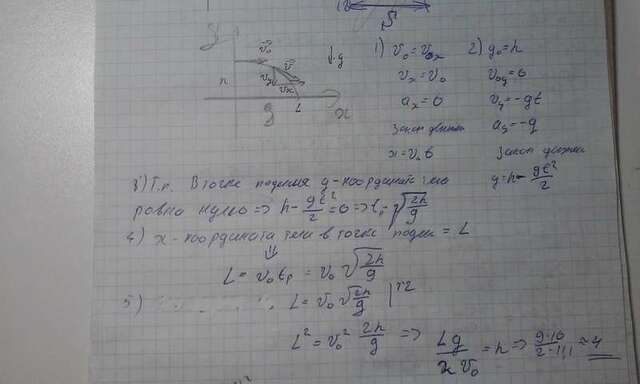 S
y
v₀
v
↓g
h
vₓ
0
L
x
1) v₀ = v₀ₓ
vₓ = v₀
aₓ = 0
Закон движен
x = v₀ t
2) y₀ = h
v₀y = 0
vy = -gt
ay = -g
Закон движен
y = h - gt²/2
3) Т.к. В точке падения y-координата тела
равна нулю => h - gt²/2 = 0 => tₚ = √2h/g
4) x - координата тела в точке паден = L
⇓
L = v₀ tₚ = v₀ √2h/g
5) L = v₀ √2h/g |↑2
L² = v₀² 2h/g => Lg/2 v₀ = h => 9·10/2·1,1 ≈ 4